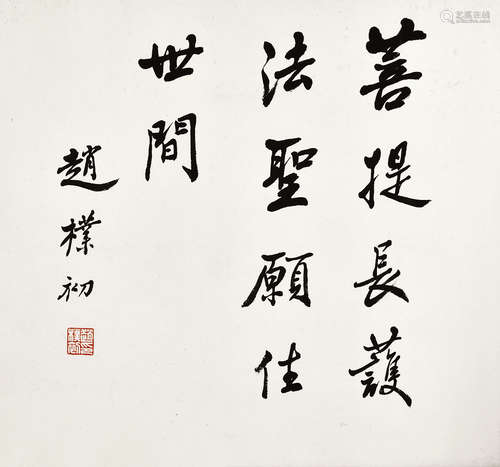 菩提長護
法聖願住
世間
趙樸初